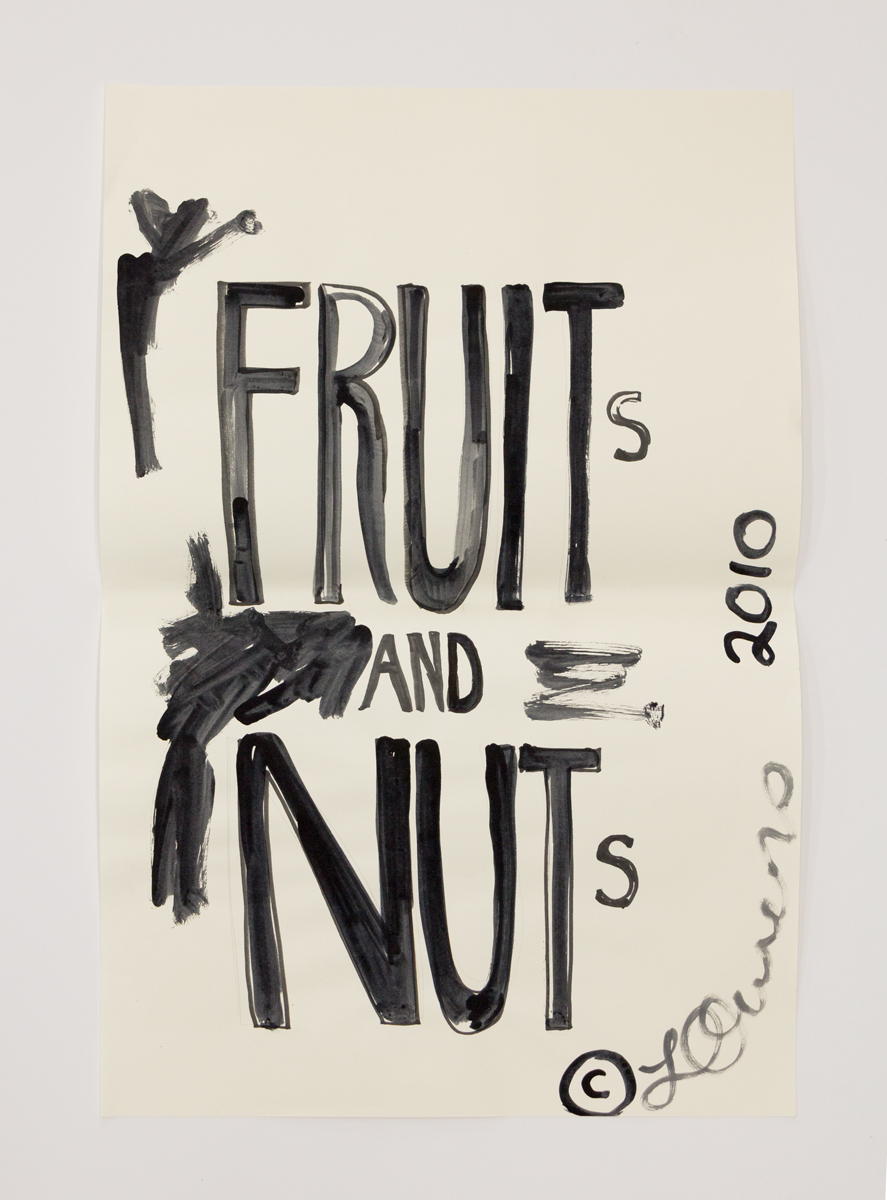 FRUITs
AND
NUTs
2010
©